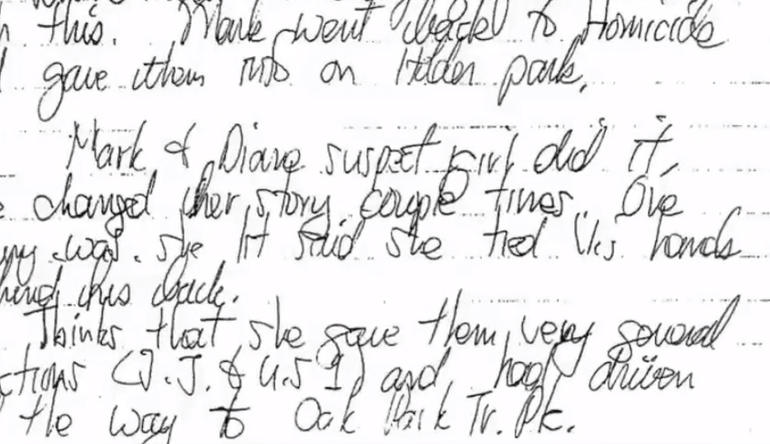 this. Mark went back to Homicide
gave them info on Holden park.
Mark & Diane suspect girl did it,
changed her story couple times. One
was she said she tied V's hands
his back.
Thinks that she gave them very general
(J.J. & U.S 1) and had driven
the way to Oak Park Tr. Pk.